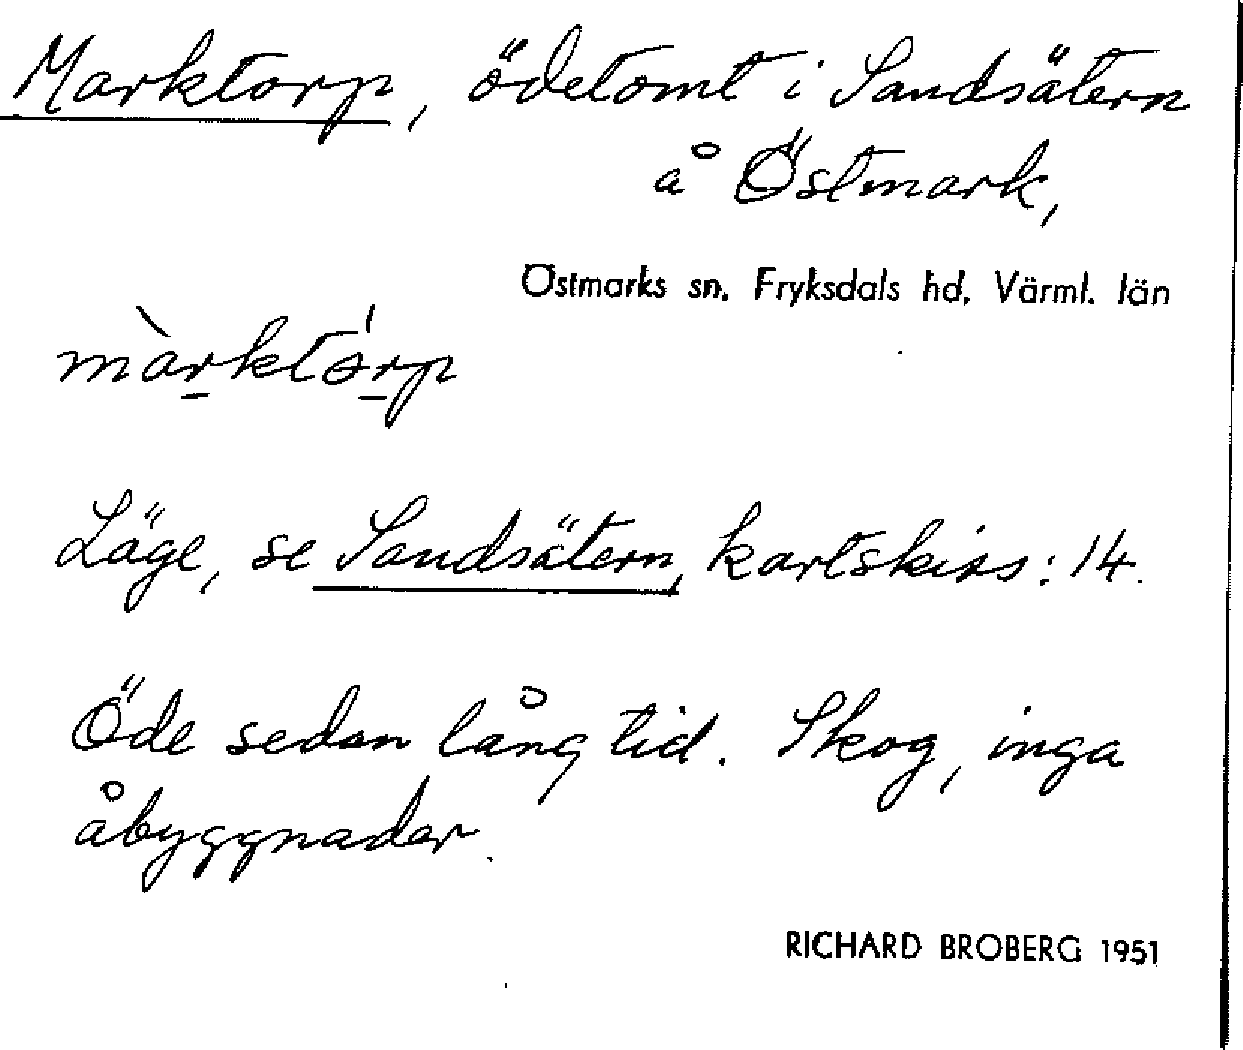 Marktorp, ödetomt i Sandsätern
å Östmark,
Östmarks sn. Fryksdals hd. Värml. län
màrktórp
Läge, se Sandsätern, kartskiss: 14.
Öde sedan lång tid. Skog, inga
åbyggnader.
RICHARD BROBERG 1951